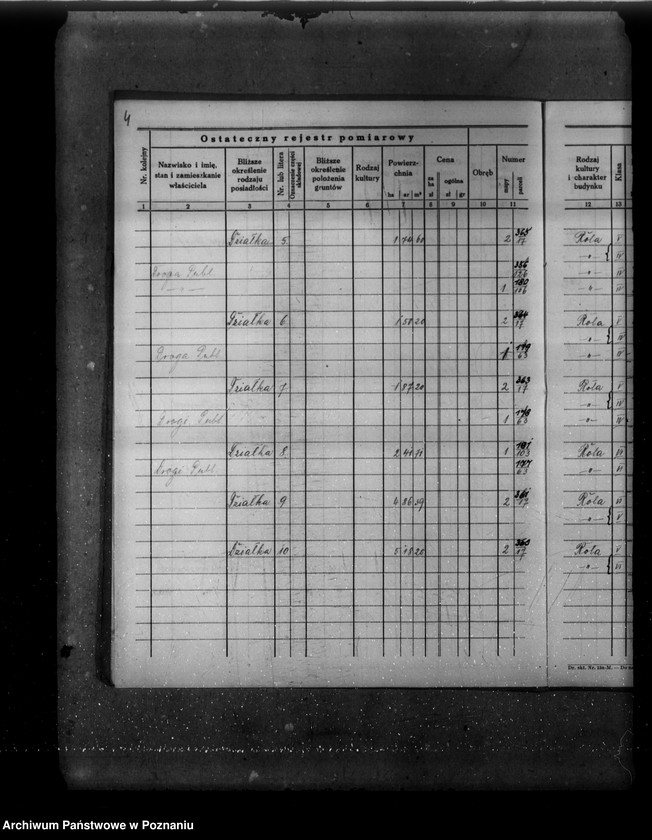 4
Ostateczny rejestr pomiarowy
Nr. kolejny
Nazwisko i imię, stan i zamieszkanie właściciela
Bliższe określenie rodzaju posiadłości
Nr. lub litera
Oznaczenie części składowej
Bliższe określenie położenia gruntów
Rodzaj kultury
Powierzchnia
ha ar m²
Cena
za ha
zł
ogólna
zł gr
Obręb
Numer
mapy
parceli
Rodzaj kultury i charakter budynku
Klasa
1 2 3 4 5 6 7 8 9 10 11 12 13
Działka 5. 1 74 60 2 17 Rola V
-"- IV
Droga Publ. 156 -"- IV
-"- 1 180 -"- IV
Działka 6. 1 58 20 2 364/17 Rola V
-"- IV
Droga Publ. 1 179/63 -"- IV
Działka 7 1 87 20 2 363/17 Rola V
-"- IV
Drogi Publ. 1 178/63 -"- IV
Działka 8. 2 41 71 1 103 Rola VI
Drogi Publ. 177/63 -"- VI
Działka 9 4 86 39 2 361/17 Rola VI
-"- V
Działka 10 5 18 20 2 17 Rola V
-"- VI
Archiwum Państwowe w Poznaniu